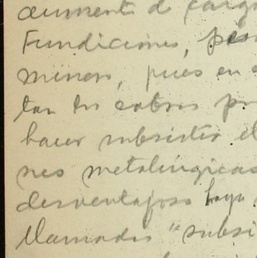 aumento d carg
Fundiciones, pes
mineros, pues en
tar los cobros p
hacer subsistir el
nes metalúrgicas
desventajoso bajo
llamados "subsi